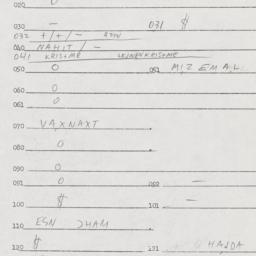 020 0
030 — 031 $
032 +/+/—
040 NAHIT / —
041 KRISOME LEINENKRISOME
050 0 051 MIZ EMAIL
060 0
061 0
070 VAXNAXT
080 0
090 0
091 0 —
100 $ 101 —
110 ESN DHAM
120 $ 121 HAJDA